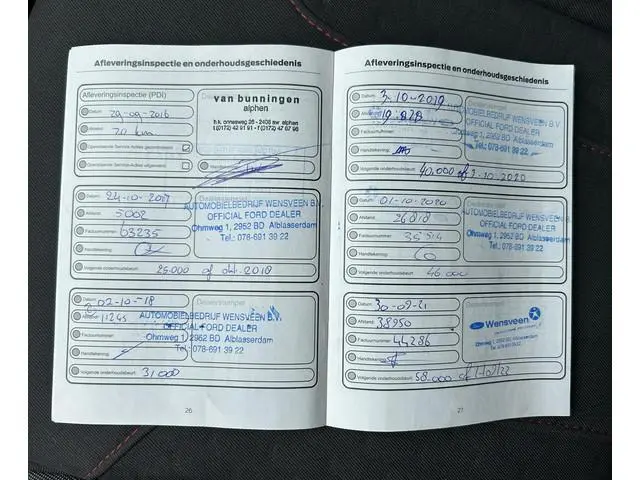 Afleveringsinspectie en onderhoudsgeschiedenis
Afleveringsinspectie (PDI)
Datum: 29-09-2016
Afstand: 20 km
van bunningen
alphen
Handtekening:
Datum: 24-10-2017
Afstand: 5002
Factuurnummer: 03235
Handtekening:
Volgende onderhoudsbeurt: 25.000 of okt. 2018
AUTOMOBIELBEDRIJF WENSVEEN B.V.
OFFICIAL FORD DEALER
Ohmweg 1, 2952 BD Alblasserdam
Tel.: 078-691 39 22
Datum: 02-10-18
Afstand: 11245
Factuurnummer:
Handtekening:
Volgende onderhoudsbeurt: 31.000
Dealerstempel
AUTOMOBIELBEDRIJF WENSVEEN B.V.
OFFICIAL FORD DEALER
Ohmweg 1, 2952 BD Alblasserdam
Tel.: 078-691 39 22
26
Afleveringsinspectie en onderhoudsgeschiedenis
Datum: 3-10-2019
Afstand:
Factuurnummer:
Handtekening:
40.000 of 3-10-2020
AUTOMOBIELBEDRIJF WENSVEEN B.V.
OFFICIAL FORD DEALER
Ohmweg 1, 2952 BD Alblasserdam
Tel.: 078-691 39 22
Datum: 01-10-2020
Afstand: 26818
Factuurnummer:
Handtekening:
Volgende onderhoudsbeurt: 46.000
AUTOMOBIELBEDRIJF WENSVEEN B.V.
OFFICIAL FORD DEALER
Ohmweg 1, 2952 BD Alblasserdam
Tel.: 078-691 39 22
Datum: 30-09-21
Afstand: 38950
Factuurnummer: 44286
Handtekening:
Volgende onderhoudsbeurt: 58.000 of
Wensveen
Ohmweg 1, 2952 BD Alblasserdam
27